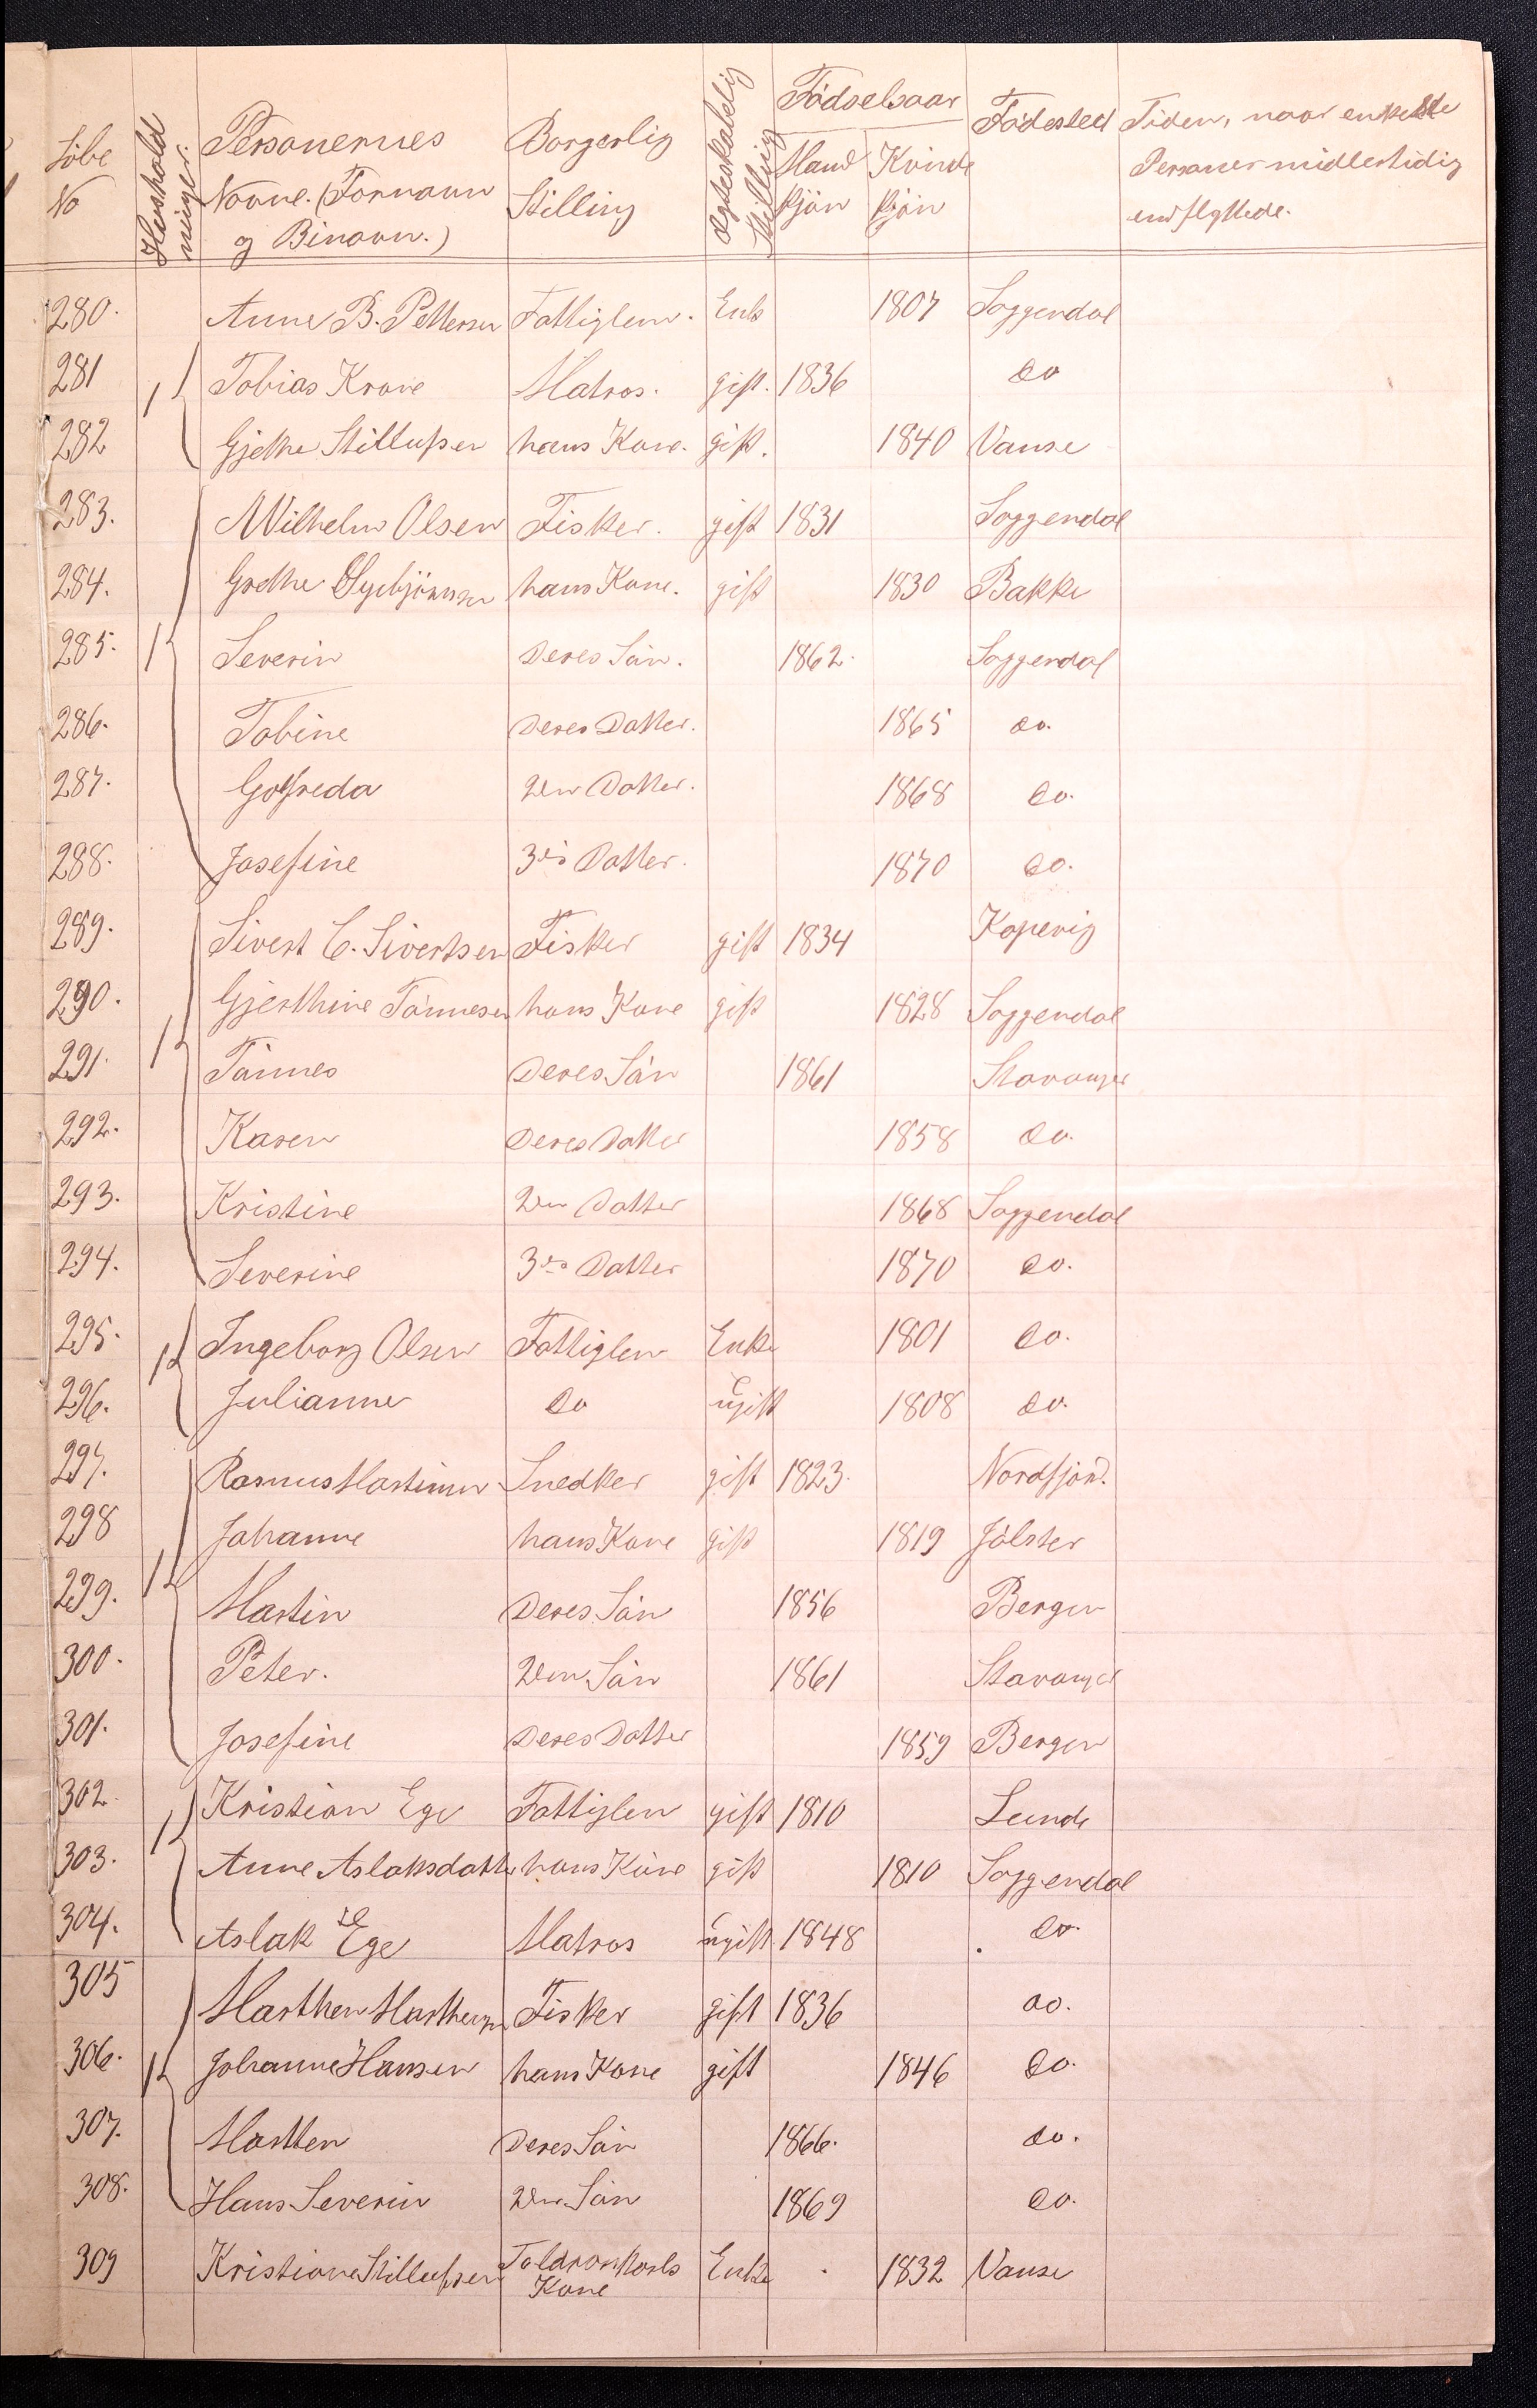 Löbe No | Husholdninger. | Personernes Navne. (Fornavn og Binavn.) | Borgerlig Stilling | Ægteskabelig Stilling | Födselsaar Mandkjön | Kvindekjön | Födested | Tiden, naar enkelte Personer midlertidig indflyttede.
280. Anne B. Pettersen Fattiglem. Enke 1807 Soggendal
281 1 Tobias Krone Matros. gift. 1836 do
282 Gjethe Stillufsen hans Kone. gift. 1840 Vanse
283. Wilhelm Olsen Fisker. gift 1831 Soggendal
284. Grethe hans Kone. gift 1830 Bakke
285. 1 Severin Deres Sön. 1862. Soggendal
286. Tobine Deres Datter. 1865 do.
287. Gotfreda 2den Datter. 1868 do.
288. Josefine 3die Datter. 1870 do.
289. Sivert C. Sivertsen Fisker gift 1834 Kopervig
290. Gjerthine Tönnesen hans Kone gift 1828 Soggendal
291. 1 Tönnes Deres Sön 1861 Stavanger
292. Karen Deres Datter 1858 do.
293. Kristine 2den Datter 1868 Soggendal
294. Severine 3die Datter 1870 do.
295. 1 Ingeborg Olsen Fattiglem Enke 1801 do.
296. Julianne do ugift 1808 do.
297. Rasmus Martinsen Snedker gift 1823. Nordfjord.
298 Johanne hans Kone gift 1819 Jölster
299. 1 Martin Deres Sön 1856 Bergen
300. Peter. 2den Sön 1861 Stavanger
301. Josefine Deres Datter 1859 Bergen
302. 1 Kristian Ege Fattiglem gift 1810 Lunde
303. Anne Aslaksdatter hans Kone gift 1810 Soggendal
304. Aslak Ege Matros ugift 1848 do.
305 Marthen Marthensen Fisker gift 1836 do.
306. 1 Johanne Hansen hans Kone gift 1846 do.
307. Marthen Deres Sön 1866. do.
308. Hans Severin 2den Sön 1869 do.
309 Kristiane Stillufsen Kone Enke 1832 Vanse